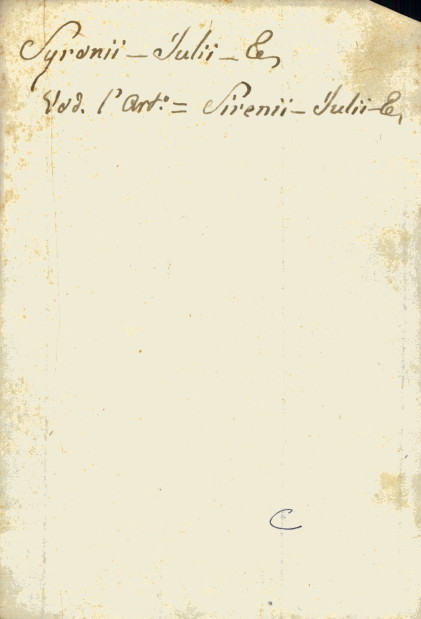 Syronii - Julii - &,
Ved. l'Art.º = Sirenii - Julii - &,
C